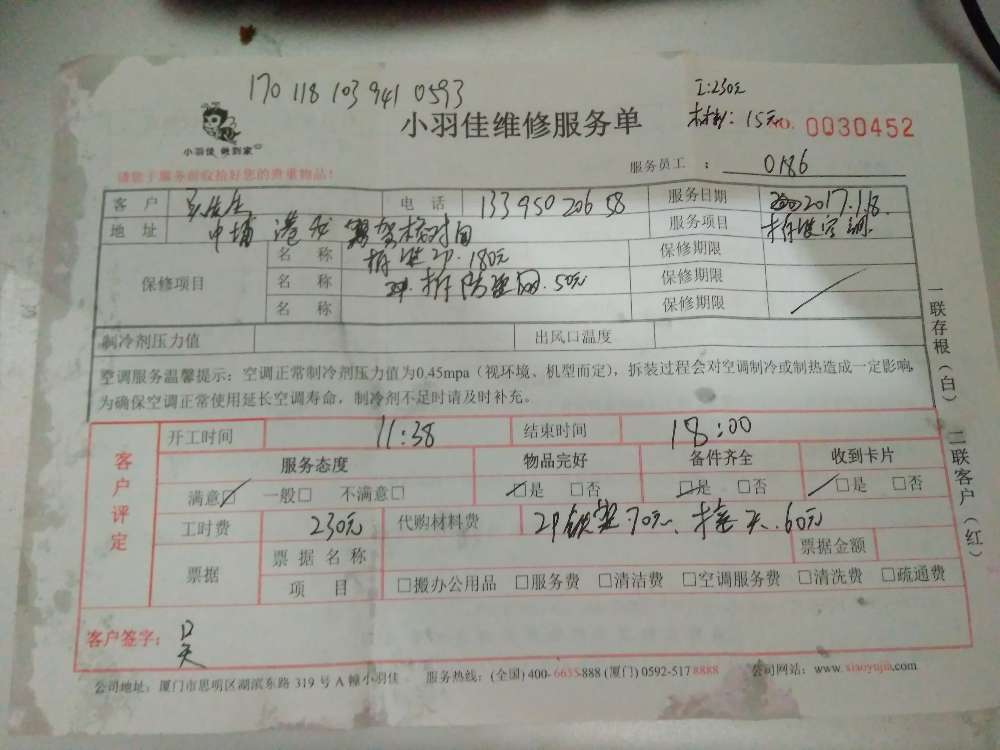 170 118 103 941 0593
工:230元
材料: 15元
小羽佳维修服务单
NO. 0030452
小羽佳 做到家
服务员工 : 0186
请您于服务前收拾好您的贵重物品!
客 户 吴先生 电 话 13395020658 服务日期 2017.1.18.
地 址 中埔 港 对面 服务项目 拆装空调
保修项目 名 称 拆装2P.180元 保修期限
名 称 拆防盗网.50元 保修期限
名 称 保修期限
制冷剂压力值 出风口温度
空调服务温馨提示:空调正常制冷剂压力值为0.45mpa(视环境、机型而定),拆装过程会对空调制冷或制热造成一定影响,
为确保空调正常使用延长空调寿命,制冷剂不足时请及时补充。
一联存根(白) 二联客户(红)
客户评定
开工时间 11:38 结束时间 18:00
服务态度 物品完好 备件齐全 收到卡片
满意□ 一般□ 不满意□ □是 □否 □是 □否 □是 □否
工时费 230元 代购材料费 2P铁架.70元、接头.60元
票据 票据名称 票据金额
项 目 □搬办公用品 □服务费 □清洁费 □空调服务费 □清洗费 □疏通费
客户签字: 吴
公司地址:厦门市思明区湖滨东路 319 号 A 幢小羽佳 服务热线:(全国) 400-6655-888 (厦门) 0592-517 8888 公司网站:www.xiaoyujia.com